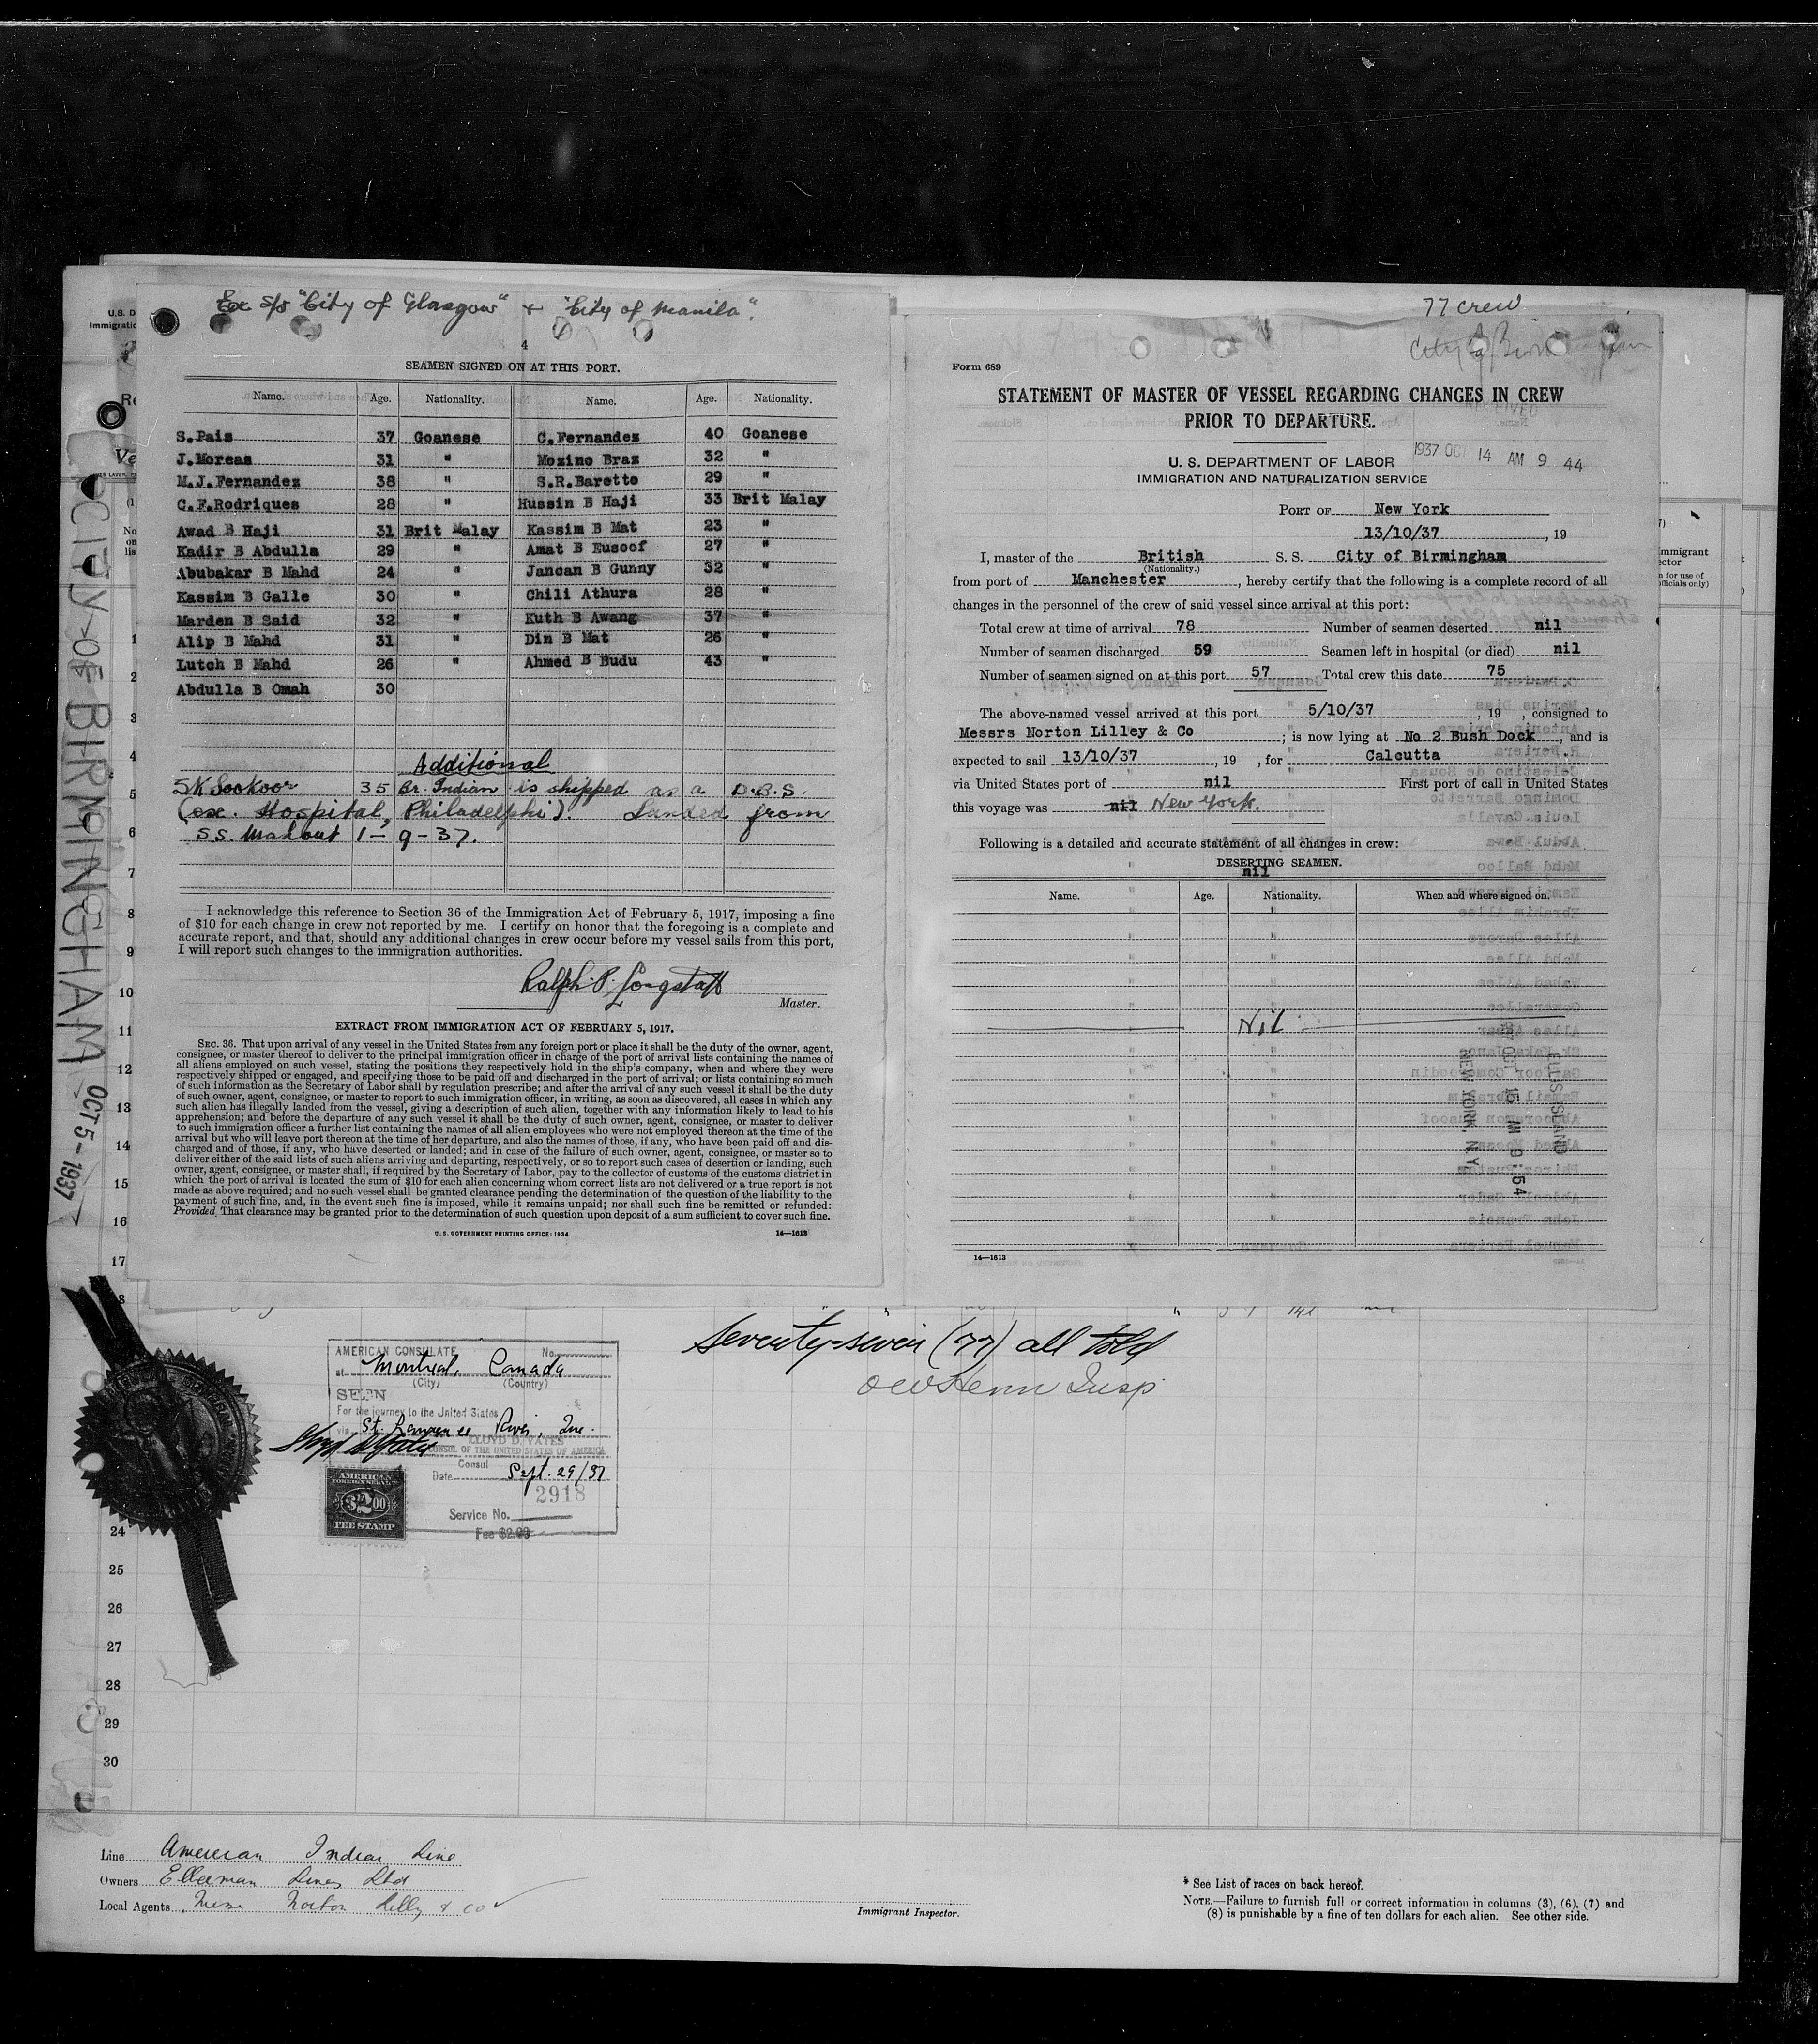 Ex S/S "City of Glasgow" + "City of Manila".
4
SEAMEN SIGNED ON AT THIS PORT.
Name. Age. Nationality. Name. Age. Nationality.
S.Pais 37 Goanese C.Fernandez 40 Goanese
J.Moreas 31 " Mozino Braz 32 "
M.J.Fernandez 38 " S.R.Baretto 29 "
C.F.Rodriques 28 " Hussin B Haji 33 Brit Malay
Awad B Haji 31 Brit Malay Kassim B Mat 23 "
Kadir B Abdulla 29 " Amat B Eusoof 27 "
Abubakar B Mahd 24 " Jancan B Gunny 32 "
Kassim B Galle 30 " Chili Athura 28 "
Marden B Said 32 " Kuth B Awang 37 "
Alip B Mahd 31 " Din B Mat 26 "
Lutch B Mahd 26 " Ahmed B Budu 43 "
Abdulla B Omah 30
Additional
SK Sookoor 35 Br. Indian is shipped as a D.B.S.
(ex. Hospital, Philadelphi). Landed from
S.S. Mahout 1-9-37.
I acknowledge this reference to Section 36 of the Immigration Act of February 5, 1917, imposing a fine
of $10 for each change in crew not reported by me. I certify on honor that the foregoing is a complete and
accurate report, and that, should any additional changes in crew occur before my vessel sails from this port,
I will report such changes to the immigration authorities.
Ralph P. Longstaff
Master.
EXTRACT FROM IMMIGRATION ACT OF FEBRUARY 5, 1917.
SEC. 36. That upon arrival of any vessel in the United States from any foreign port or place it shall be the duty of the owner, agent,
consignee, or master thereof to deliver to the principal immigration officer in charge of the port of arrival lists containing the names of
all aliens employed on such vessel, stating the positions they respectively hold in the ship's company, when and where they were
respectively shipped or engaged, and specifying those to be paid off and discharged in the port of arrival; or lists containing so much
of such information as the Secretary of Labor shall by regulation prescribe; and after the arrival of any such vessel it shall be the duty
of such owner, agent, consignee, or master to report to such immigration officer, in writing, as soon as discovered, all cases in which any
such alien has illegally landed from the vessel, giving a description of such alien, together with any information likely to lead to his
apprehension; and before the departure of any such vessel it shall be the duty of such owner, agent, consignee, or master to deliver
to such immigration officer a further list containing the names of all alien employees who were not employed thereon at the time of the
arrival but who will leave port thereon at the time of her departure, and also the names of those, if any, who have been paid off and dis-
charged and of those, if any, who have deserted or landed; and in case of the failure of such owner, agent, consignee, or master so to
deliver either of the said lists of such aliens arriving and departing, respectively, or so to report such cases of desertion or landing, such
owner, agent, consignee, or master shall, if required by the Secretary of Labor, pay to the collector of customs of the customs district in
which the port of arrival is located the sum of $10 for each alien concerning whom correct lists are not delivered or a true report is not
made as above required; and no such vessel shall be granted clearance pending the determination of the question of the liability to the
payment of such fine, and, in the event such fine is imposed, while it remains unpaid; nor shall such fine be remitted or refunded:
Provided, That clearance may be granted prior to the determination of such question upon deposit of a sum sufficient to cover such fine.
U. S. GOVERNMENT PRINTING OFFICE: 1934 14—1613
CITY OF BIRMINGHAM OCT 5- 1937
77 crew
City of Birmingham
Form 689
STATEMENT OF MASTER OF VESSEL REGARDING CHANGES IN CREW
PRIOR TO DEPARTURE.
1937 OCT 14 AM 9 44
U. S. DEPARTMENT OF LABOR
IMMIGRATION AND NATURALIZATION SERVICE
PORT OF New York
13/10/37, 19
I, master of the British S. S. City of Birmingham
(Nationality.)
from port of Manchester, hereby certify that the following is a complete record of all
changes in the personnel of the crew of said vessel since arrival at this port:
Total crew at time of arrival 78 Number of seamen deserted nil
Number of seamen discharged 59 Seamen left in hospital (or died) nil
Number of seamen signed on at this port 57 Total crew this date 75
The above-named vessel arrived at this port 5/10/37, 19 , consigned to
Messrs Norton Lilley & Co; is now lying at No 2 Bush Dock, and is
expected to sail 13/10/37, 19 , for Calcutta
via United States port of nil First port of call in United States
this voyage was nil New York.
Following is a detailed and accurate statement of all changes in crew:
DESERTING SEAMEN.
nil
Name. Age. Nationality. When and where signed on.
Nil
ELLIS ISLAND
OCT 15 AM 9:54
NEW YORK, N.Y.
14—1613
mmigrant
ector
n for use of
officials only)
Seventy-seven (77) all told
Insp.
AMERICAN CONSULATE No.
at Montreal, Canada
(City) (Country)
SEEN
For the journey to the United States
via St. Lawrence River, Que.
LLOYD D. YATES
CONSUL OF THE UNITED STATES OF AMERICA
Consul
Date Sept. 29/37
2918
Service No.
Fee $2.00
AMERICAN
FOREIGN SERVICE
$2.00
FEE STAMP
1
2
3
4
5
6
7
8
9
10
11
12
13
14
15
16
17
24
25
26
27
28
29
30
Line American Indian Line
Owners Ellerman Lines Ltd
Local Agents Messrs Norton Lilly & Co
Immigrant Inspector.
* See List of races on back hereof.
NOTE.—Failure to furnish full or correct information in columns (3), (6), (7) and
(8) is punishable by a fine of ten dollars for each alien. See other side.